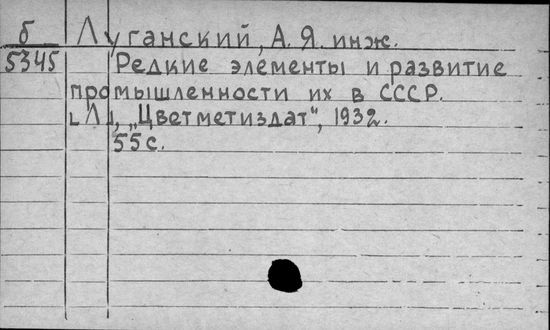 б Луганский, А. Я. инж.
5345 Редкие элементы и развитие
промышленности их в СССР.
[Л], „Цветметиздат“, 1932.
55 с.